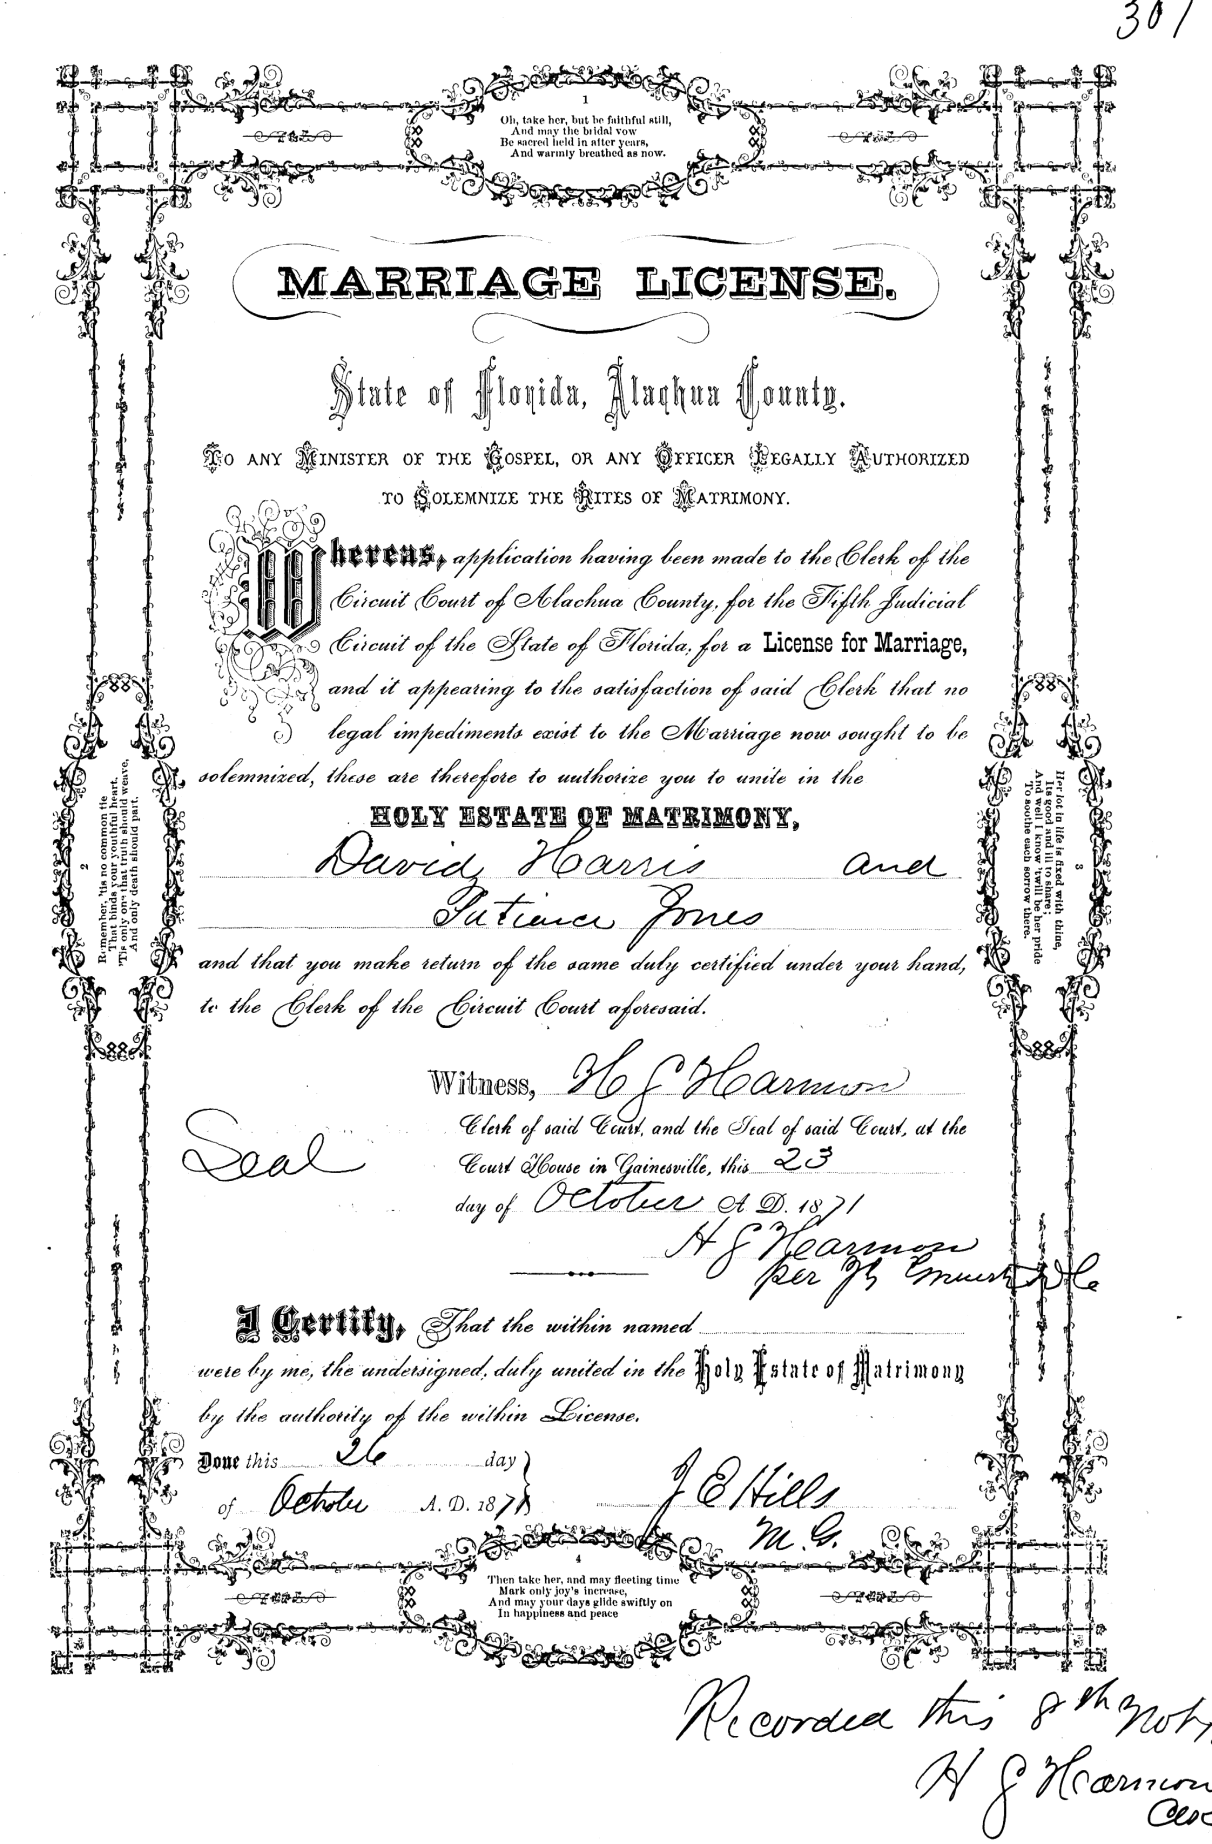 301
1
Oh, take her, but be faithful still,
And may the bridal vow
Be sacred held in after years,
And warmly breathed as now.
MARRIAGE LICENSE.
State of Florida, Alachua County.
TO ANY MINISTER OF THE GOSPEL, OR ANY OFFICER LEGALLY AUTHORIZED
TO SOLEMNIZE THE RITES OF MATRIMONY.
Whereas, application having been made to the Clerk of the
Circuit Court of Alachua County, for the Fifth Judicial
Circuit of the State of Florida, for a License for Marriage,
and it appearing to the satisfaction of said Clerk that no
legal impediments exist to the Marriage now sought to be
solemnized, these are therefore to authorize you to unite in the
HOLY ESTATE OF MATRIMONY,
David Harris and
Patience Jones
and that you make return of the same duly certified under your hand,
to the Clerk of the Circuit Court aforesaid.
2
Remember, 'tis no common tie
That binds your youthful heart,
'Tis only one that truth should weave,
And only death should part.
3
Her lot in life is fixed with thine,
Its good and ill to share;
And well I know 'twill be her pride
To soothe each sorrow there.
Witness, H G Harmon
Clerk of said Court, and the Seal of said Court, at the
Seal
Court House in Gainesville, this 23
day of October A. D. 1871
H G Harmon
per
I Certify, That the within named
were by me, the undersigned, duly united in the Holy Estate of Matrimony
by the authority of the within License.
Done this 26 day
of October A. D. 1871
J E Hills
M. G.
4
Then take her, and may fleeting time
Mark only joy's increase,
And may your days glide swiftly on
In happiness and peace
Recorded this 8th Nov
H G Harmon